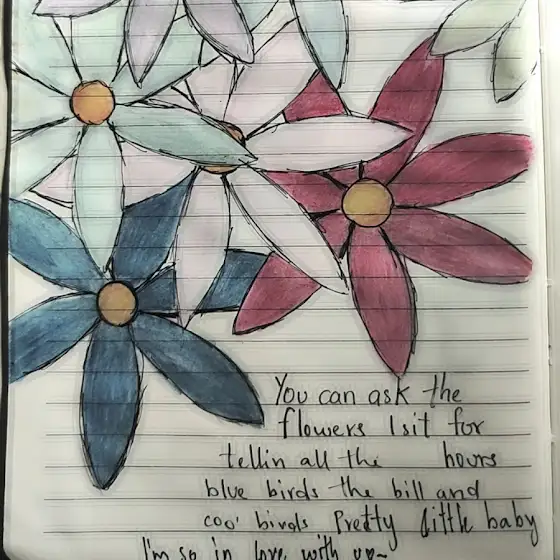 You can ask the
flowers I sit for
tellin all the hours
blue birds the bill and
coo' birds Pretty little baby
I'm so in love with u